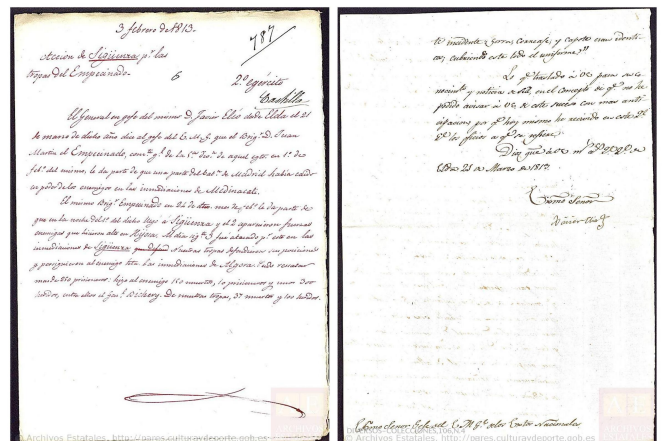 3 febrero de 1813.
787
Accion de Sigüenza pr. las
tropas del Empecinado.
6
2º egército
Castilla
El General en gefe del mismo D. Javier Elio desde Elda el 21
de marzo de dicho año dice al gefe del E. M. G. que el Brigr. D. Juan
Martin el Empecinado, comte. gl. de la 5ª Divn. de aquel egto. en 1º de
febº. del mismo, le da parte de que una parte del batn. de Madrid habia caido
en poder de los enemigos en las inmediaciones de Medinaceli.
El mismo Brigr. Empecinado en 24 de dicho mes de febº. le da parte de
que en la noche del 1º del dicho llegó a Sigüenza y el 2 aparecieron fuerzas
enemigas que hicieron alto en Mojares. Al dia sigte. 3 fue atacado pr. este en las
inmediaciones de Sigüenza Nuestras tropas defendieron sus posiciones
y persiguieron al enemigo hasta las inmediaciones de Algora
mas de 150 prisioneros: hizo al enemigo 150 muertos, 10 prisioneros y unos 300
heridos, entre ellos el Genl. De nuestras tropas, 37 muertos y 100 heridos.
te incidente
cubriendo este todo el uniforme"
Lo qe. traslado á V.E. para su co-
nocimto. y noticia de en el concepto de qe. no he
podido avisar á V.E. de este suceso con mas anti-
cipacion pr. qe. hoy mismo he recivido en este
los oficios a qe. se refiere.
Dios gue. á V.E. ms. as.
Elda 21 de Marzo de 1813.
Exmo Señor
Xavier Elio
Exmo Señor Gefe del E. M. Gl. de los Extos Nacionales
DIVERSOS-COLECCIONES,106,N.6
© Archivos Estatales, http://pares.culturaydeporte.gob.es
© Archivos Estatales, http://pares.culturaydeporte.gob.es